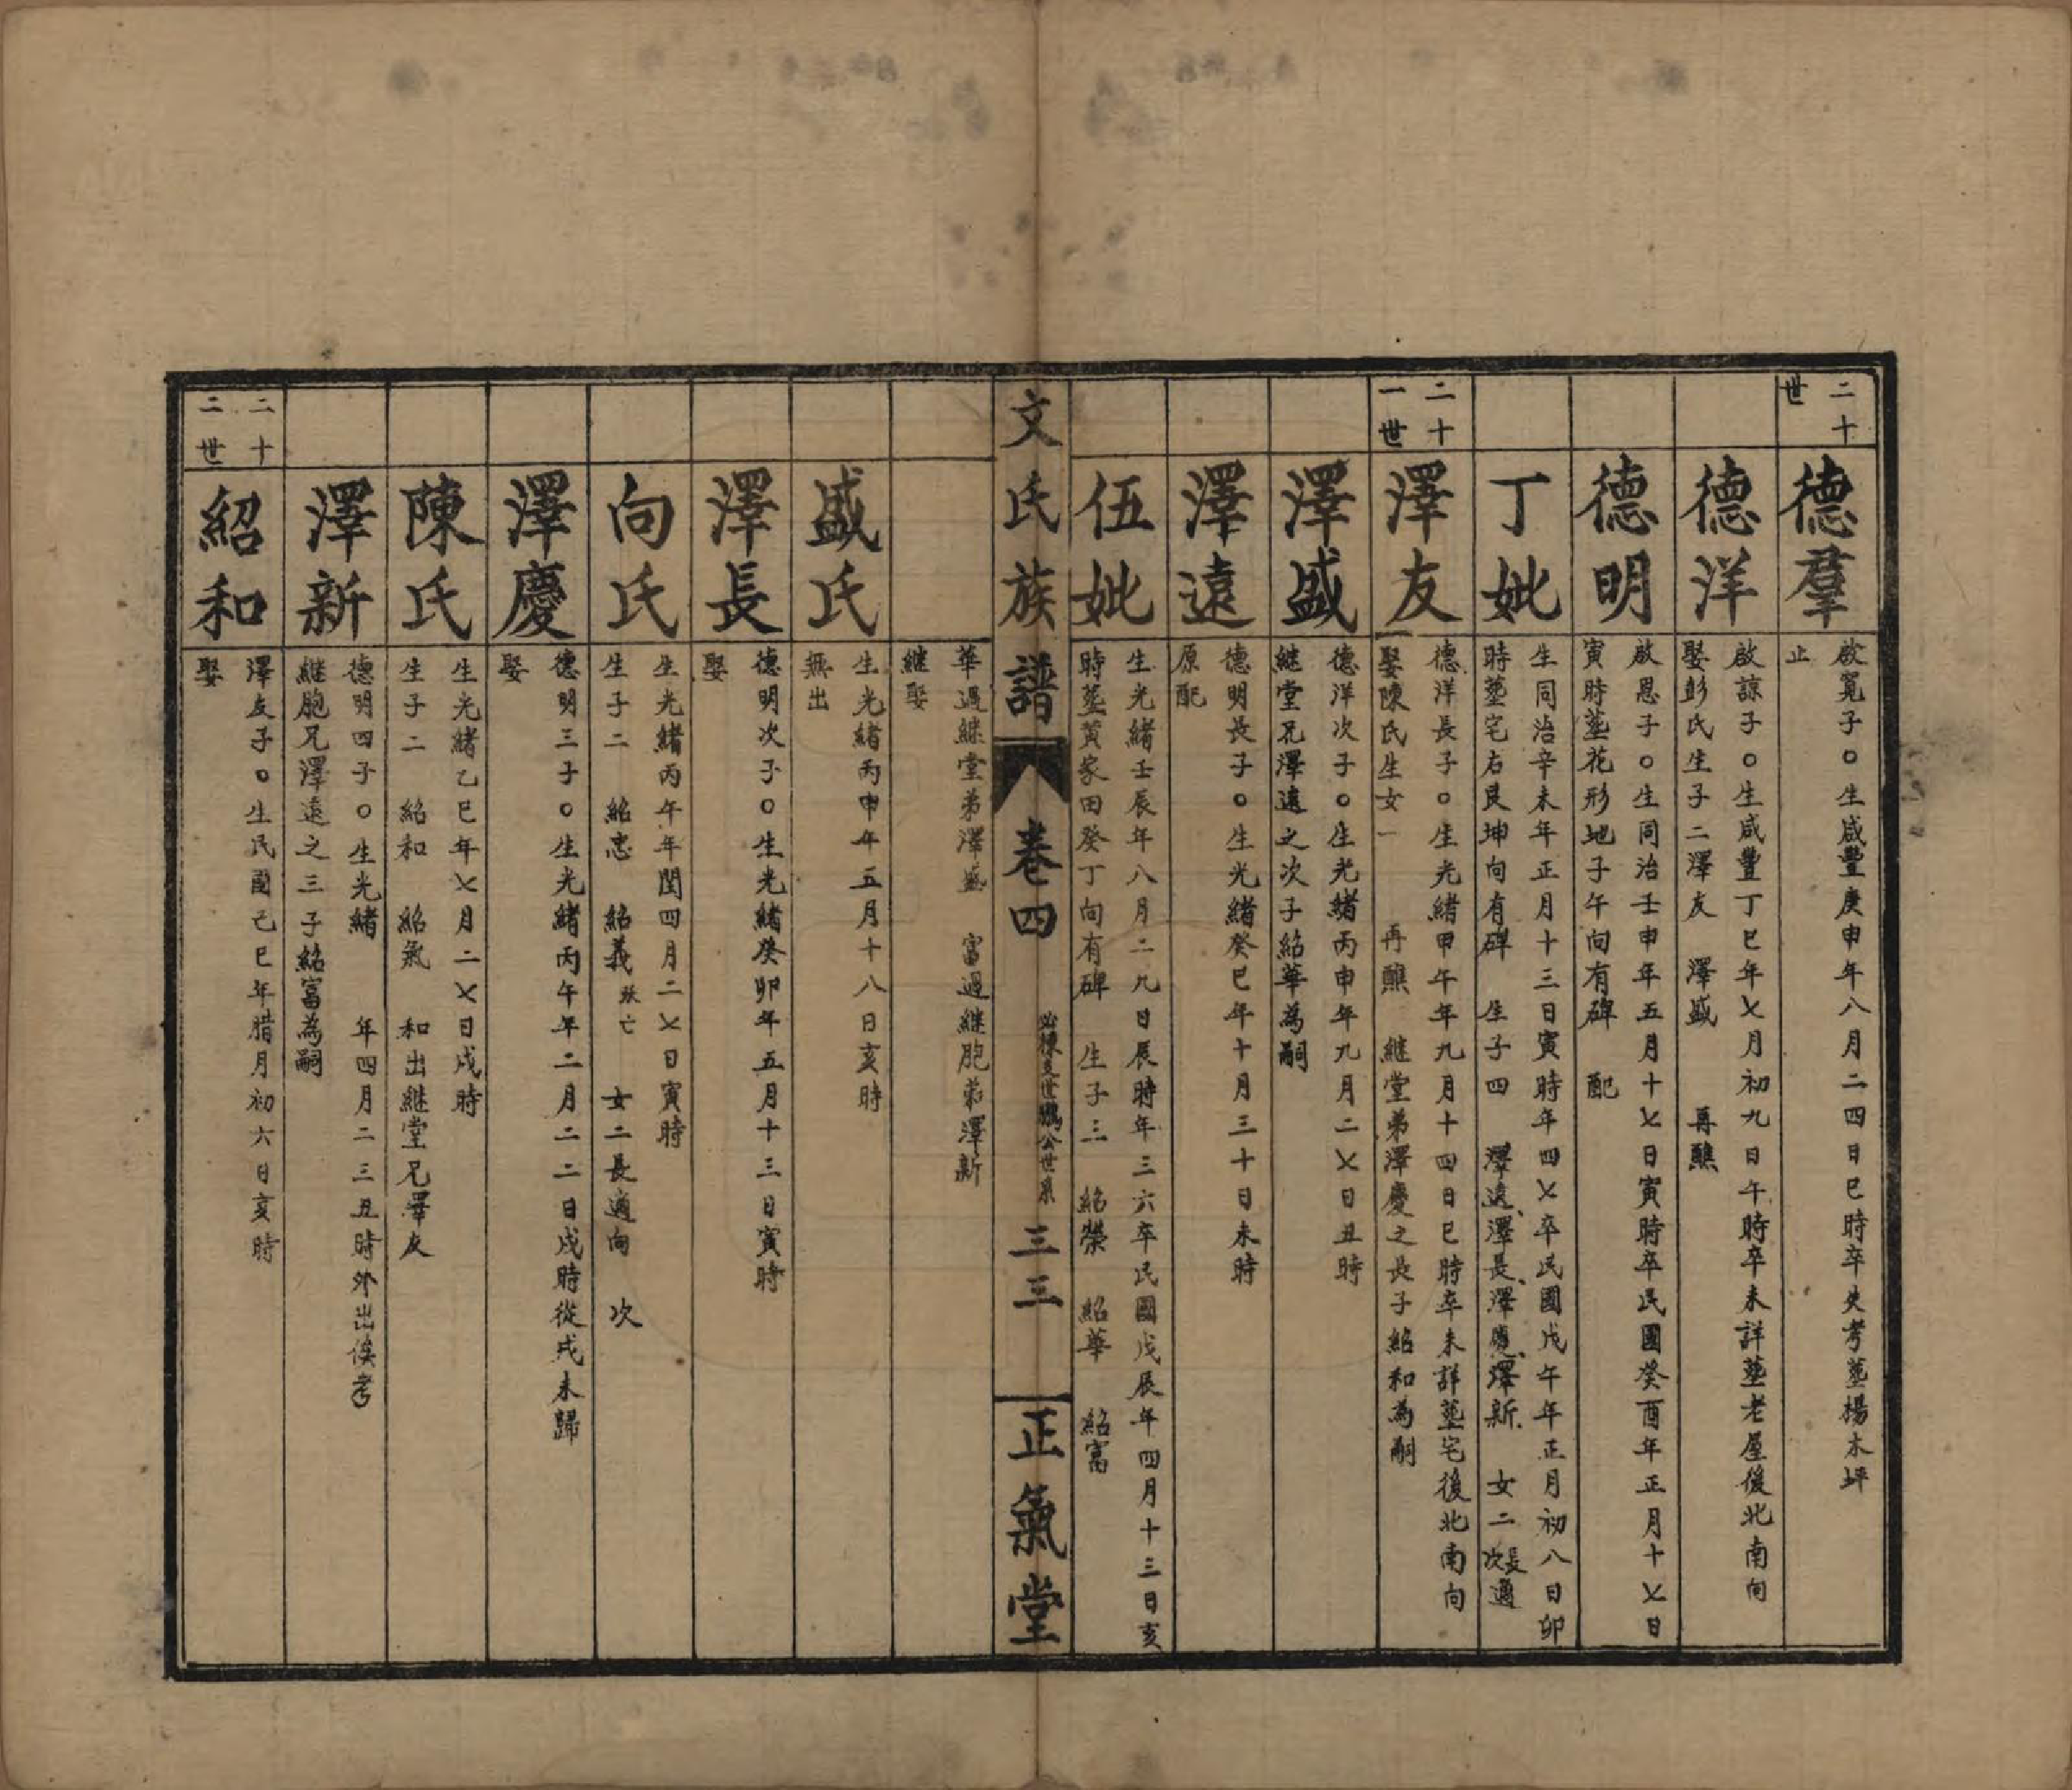 二十世
德羣
啟寬子〇生咸豐庚申年八月二四日巳時卒失考塟楊木坪
止
德洋
啟諒子〇生咸豐丁巳年七月初九日午時卒未詳塟老屋後北南向
娶彭氏生子二澤友 澤盛 再醮
德明
啟恩子〇生同治壬申年五月十七日寅時卒民國癸酉年正月十七日
寅時塟花形地子午向有碑 配
丁妣
生同治辛未年正月十三日寅時年四七卒民國戊午年正月初八日卯
時塟宅右艮坤向有碑 生子四 澤遠、澤長、澤慶、澤新、 女二長次適
二十一世
澤友
德洋長子〇生光緒甲午年九月十四日巳時卒未詳塟宅後北南向
娶陳氏生女一 再醮 継堂弟澤慶之長子紹和為嗣
澤盛
德洋次子〇生光緒丙申年九月二七日丑時
継堂兄澤遠之次子紹華為嗣
澤遠
德明長子〇生光緒癸巳年十月三十日未時
原配
伍妣
生光緒壬辰年八月二九日辰時年三六卒民國戊辰年四月十三日亥
時塟黃家田癸丁向有碑 生子三 紹榮 紹華 紹富
文氏族譜 卷四 三三 正氣堂
華過継堂弟澤盛 富過継胞弟澤新
継娶
盛氏
生光緒丙申年五月十八日亥時
無出
澤長
德明次子〇生光緒癸卯年五月十三日寅時
娶
向氏
生光緒丙午年閏四月二七日寅時
生子二 紹忠 紹義殀亡 女二長適向 次
澤慶
德明三子〇生光緒丙午年二月二二日戌時從戎未歸
娶
陳氏
生光緒乙巳年七月二七日戌時
生子二 紹和 紹氣 和出継堂兄澤友
澤新
德明四子〇生光緒 年四月二三丑時外出俟考
継胞兄澤遠之三子紹富為嗣
二十二世
紹和
澤友子〇生民國己巳年腊月初六日亥時
娶